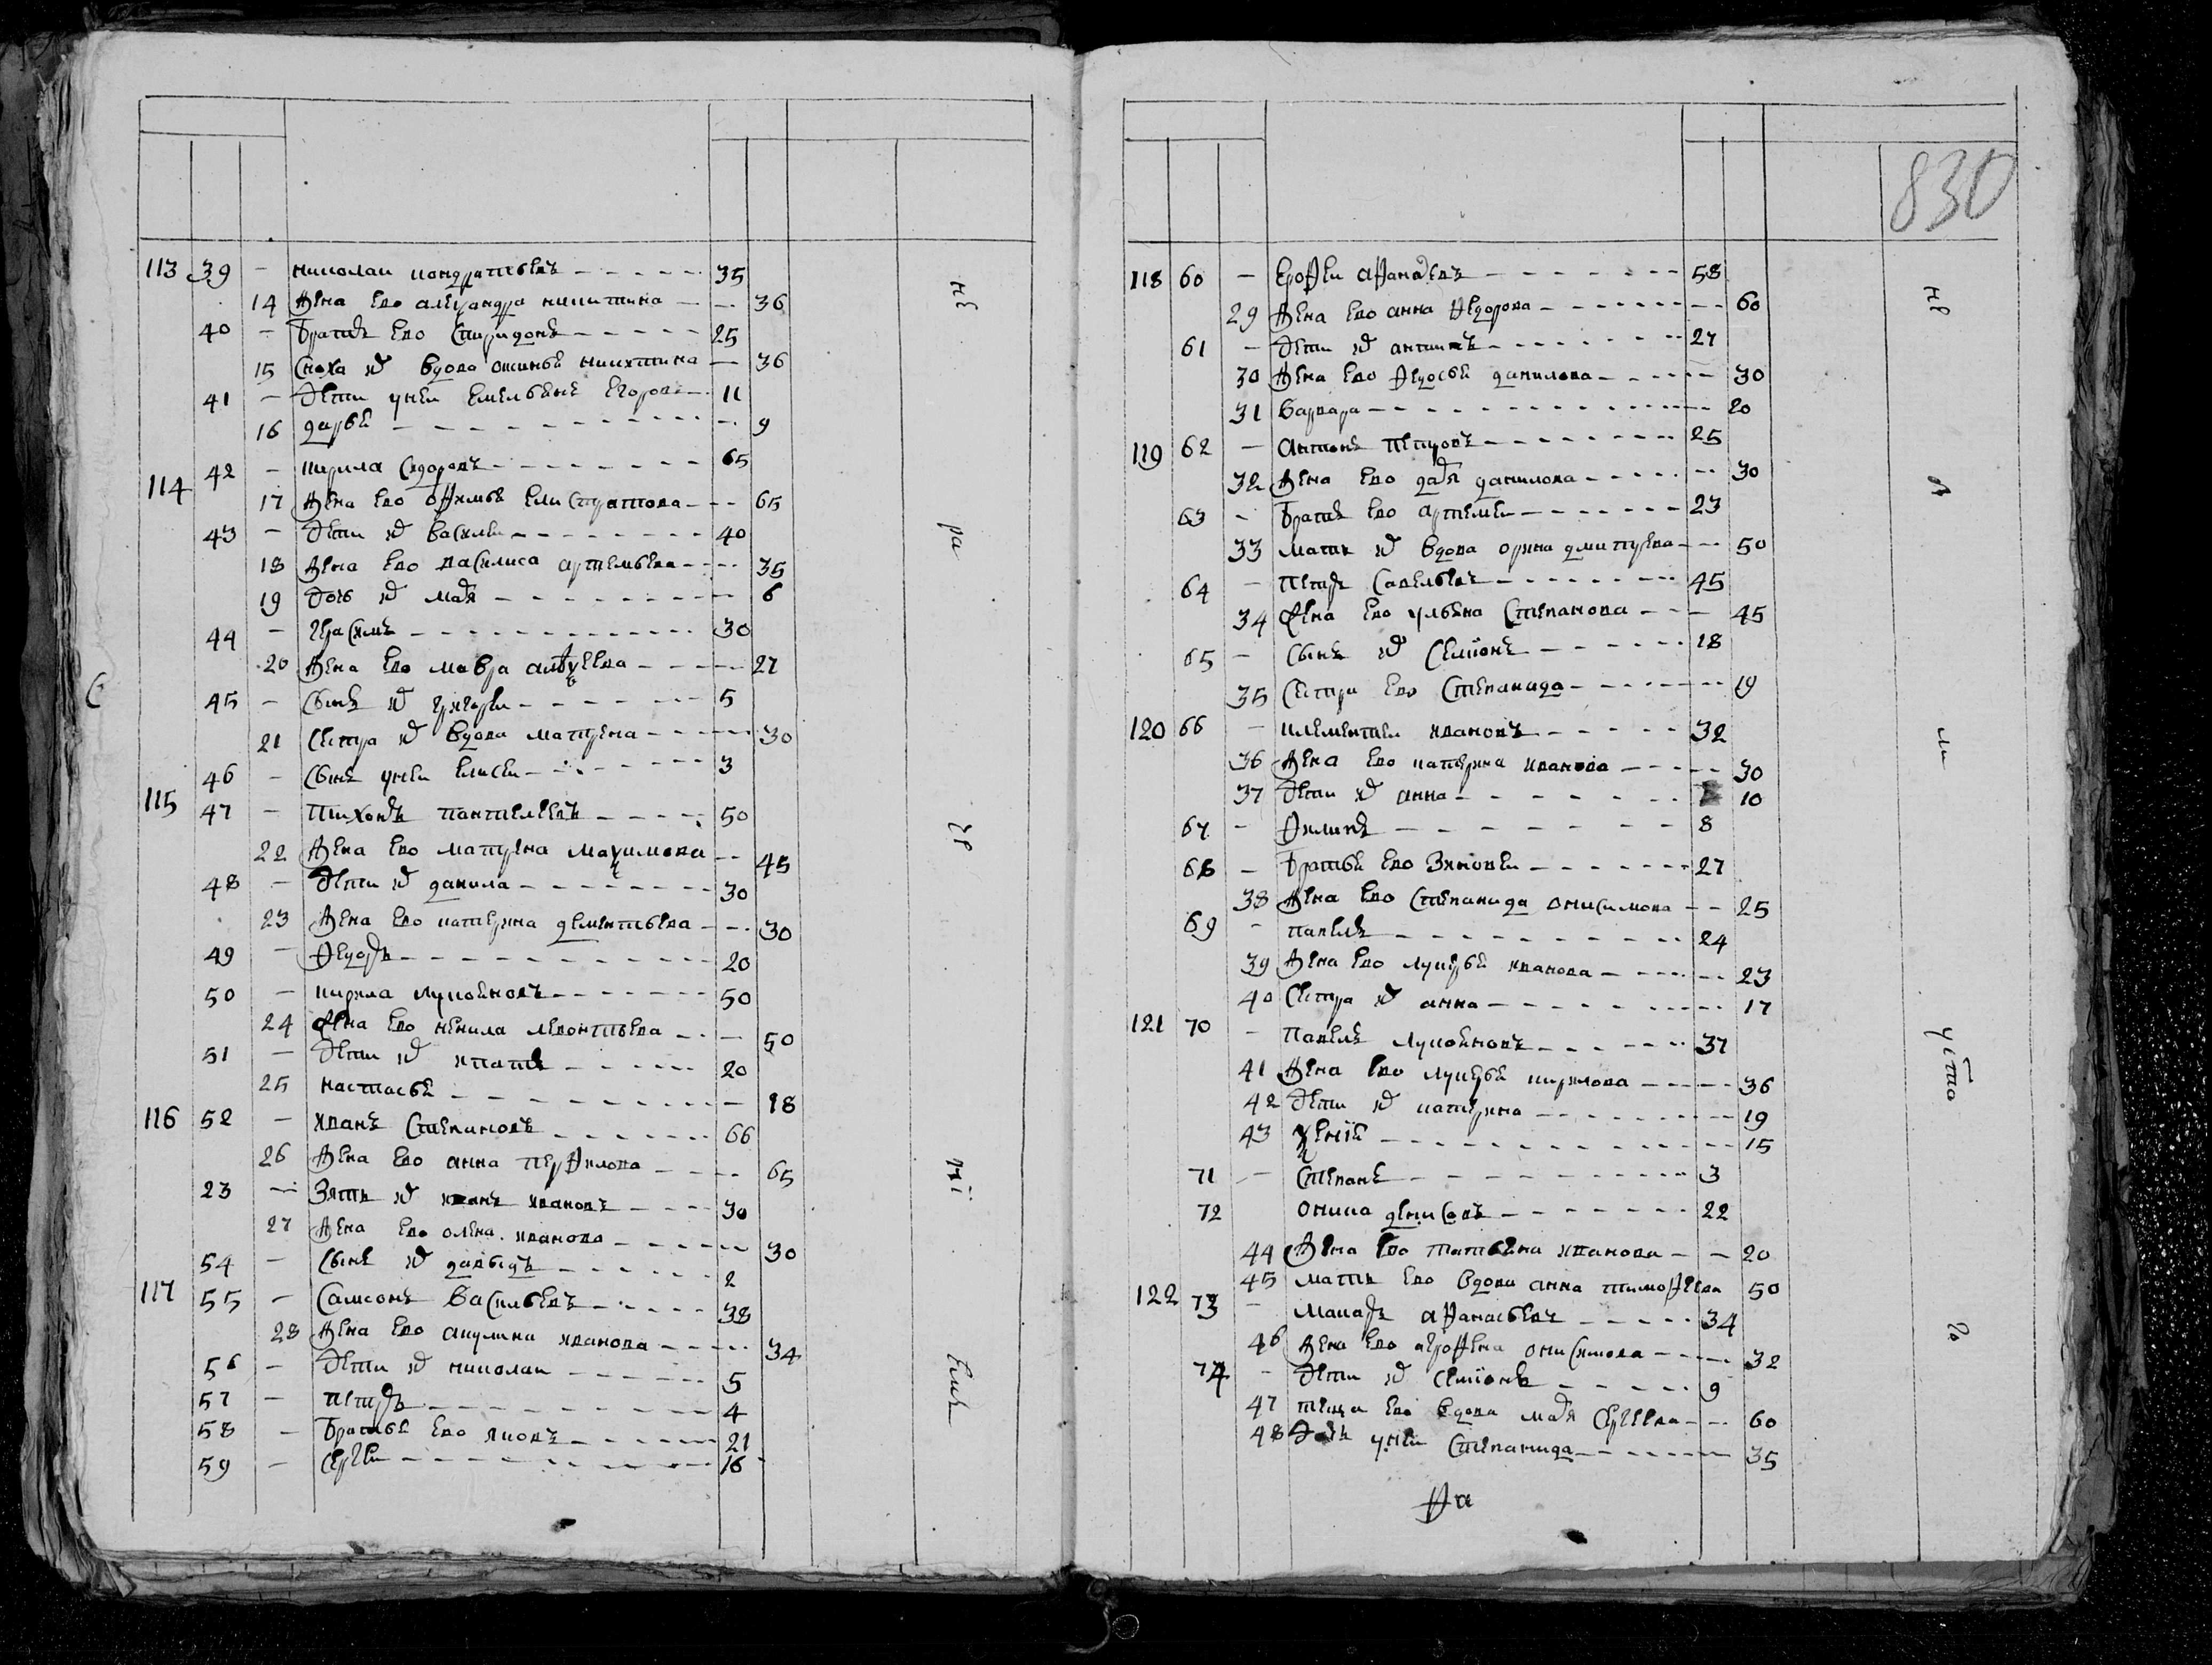 113 39 – николаи кондратьевъ 35
14 жена ево александра никитина 36
40 – братъ ево спиридонъ 25
15 сноха их вдова никитина 36
41 – дети у неи емельянъ егоровъ 11
16 дарья 9
114 42 – кирила сидоровъ 65
17 жена ево офимья елистратова 65
43 – дети их василеи 40
18 жена ево василиса артемьева 35
19 дочь их марья 6
44 – герасимъ 30
20 жена ево мавра алексеева 27
45 – сынъ их григореи 5
21 сестра их вдова матрена 30
46 – сынъ у неи елисеи 3
115 47 – тихонъ пантелеевъ 50
22 жена ево матрена максимова 45
48 – дети их данила 30
23 жена ево катерина дементьева 30
49 – федоръ 20
50 – кирила лукояновъ 50
24 жена ево ненила леонтьева 50
51 – дети их ипатъ 20
25 настасья 18
116 52 – иванъ степановъ 66
26 жена ево анна перфилова 65
23 – зять их иванъ ивановъ 30
27 жена ево олена иванова 30
54 – сынъ их давыдъ 2
117 55 – самсонъ васильевъ 38
28 жена ево акулина иванова 34
56 – дети их николаи 5
57 – петръ 4
58 – братья ево яковъ 21
59 – сергеи 16
не
ра
че
ниі
екъ
830
118 60 – ерофеи афанасьевъ 58
29 жена ево анна федорова 60
61 – дети их антипъ 27
30 жена ево федосья данилова 30
31 варвара 20
119 62 – антонъ петровъ 25
32 жена ево дарья данилова 30
63 – братъ ево артемеи 23
33 мать их вдова орина дмитрева 50
64 – петръ савельевъ 45
34 жена ево ульяна степанова 45
65 – сынъ их семионъ 18
35 сестра ево степанида 19
120 66 – клементеи ивановъ 32
36 жена ево катерина иванова 30
37 дети их анна 10
67 – филипъ 8
68 – братья ево зиновеи 27
38 жена ево степанида онисимова 25
69 – павелъ 24
39 жена ево лукерья иванова 23
40 сестра их анна 17
121 70 – павелъ лукояновъ 37
41 жена ево лукерья кирилова 36
42 дети их катерина 19
43 ксения 15
71 – степанъ 3
72 оника денисовъ 22
44 жена ево татьяна иванова 20
45 мать ево вдова анна тимофеева 50
122 73 – макаръ афанасьевъ 34
46 жена ево агрофена онисимова 32
74 – дети их семионъ 9
47 теща ево вдова марья сергеева 60
48 дочь у неи степанида 35
не
ли
уста
го